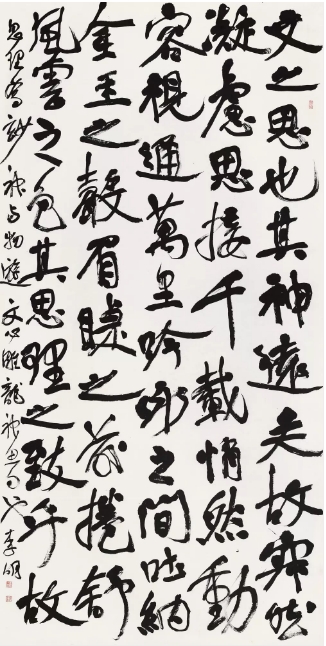 文之思也其神遠矣故寂然
凝慮思接千載悄然動
容視通萬里吟咏之間吐納
金玉之聲眉睫之前捲舒
風雲之色其思理之致乎故
思理為妙神与物遊文心雕龍神思句李明